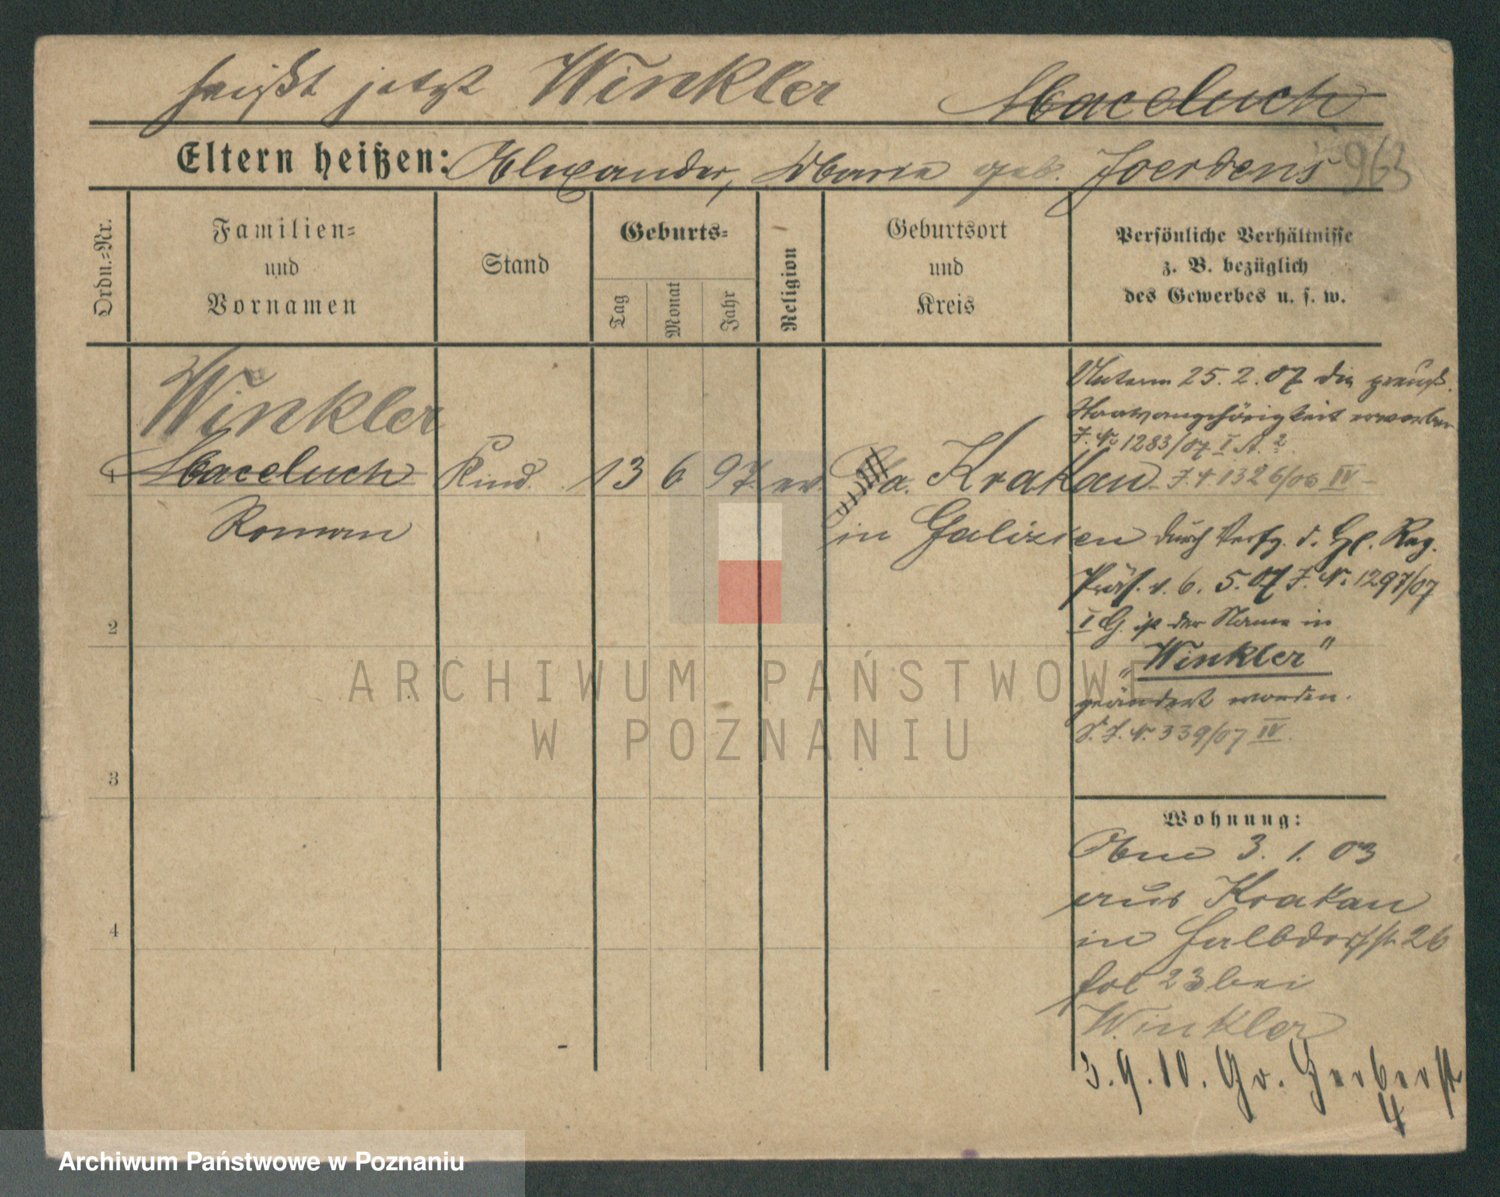 heißt jetzt Winkler Maceluch
963
Eltern heißen: Alexander, Marie geb. Joerdens
Ordn.-Nr.
Familien-
und
Vornamen
Stand
Geburts-
Tag
Monat
Jahr
Religion
Geburtsort
und
Kreis
Persönliche Verhältnisse
z. B. bezüglich
des Gewerbes u. s. w.
Winkler
1 Maceluch Kind 13 6 97 ev Krakau
Roman in Galizien
2
3
4
Unterm 25.2.07 die preuß.
Staatsangehörigkeit erworben
J. No 1283/07 I A.
J. No 1326/06 IV
durch Verfg. d. H. Reg.
Präs. v. 6. 5. 07 J. No. 1297/07
I G. ist der Name in
„Winkler"
geändert worden.
S. J. No. 339/07 IV.
Wohnung:
3. 1. 03
aus Krakau
in Halbdorfstr 26
fol 23 bei
Winkler
3.9.10. Gr. Gerberstr
4
ARCHIWUM PAŃSTWOWE
W POZNANIU
Archiwum Państwowe w Poznaniu